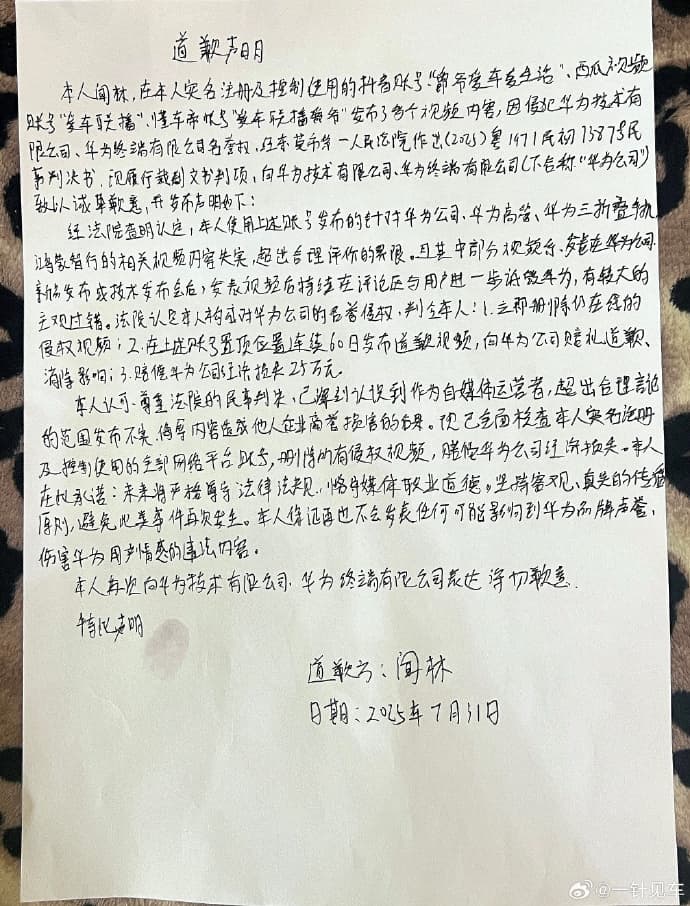 道歉声明
本人闻林，在本人实名注册及控制使用的抖音账号"爵爷爱车爱生活"、西瓜视频
账号"爱车联播"、懂车帝帐号"爱车联播爵爷"发布了多个视频内容，因侵犯华为技术有
限公司、华为终端有限公司名誉权，经东莞市第一人民法院作出(2025)粤1971民初13875民
事判决书，现履行裁判文书判项，向华为技术有限公司、华为终端有限公司(下合称"华为公司")
致以诚挚歉意，并发布声明如下：
经法院查明认定，本人使用上述账号发布的针对华为公司、华为高管、华为三折叠手机、
鸿蒙智行的相关视频内容失实，超出合理评价的界限。且其中部分视频系 在华为公司
新品发布或技术发布会后，发表视频后持续在评论区与用户进一步诋毁华为，有较大的
主观过错。法院认定本人构成对华为公司的名誉侵权，判令本人：1.立即删除仍在线的
侵权视频；2.在上述账号置顶位置连续60日发布道歉视频，向华为公司赔礼道歉、
消除影响；3.赔偿华为公司经济损失25万元。
本人认可、尊重法院的民事判决，已深刻认识到作为自媒体运营者，超出合理言论
的范围发布不实、侮辱内容造成他人企业商誉损害的后果。现已全面核查本人实名注册
及控制使用的全部网络平台账号，删除所有侵权视频，赔偿华为公司经济损失。本人
在此承诺：未来将严格遵守法律法规，恪守媒体职业道德。坚持客观、真实的传播
原则，避免此类事件再次发生。本人保证再也不会发表任何可能影响到华为品牌声誉、
伤害华为用户情感的违法内容。
本人再次向华为技术有限公司、华为终端有限公司表达深切歉意.
特此声明
道歉方：闻林
日期：2025年7月31日
@一针见车